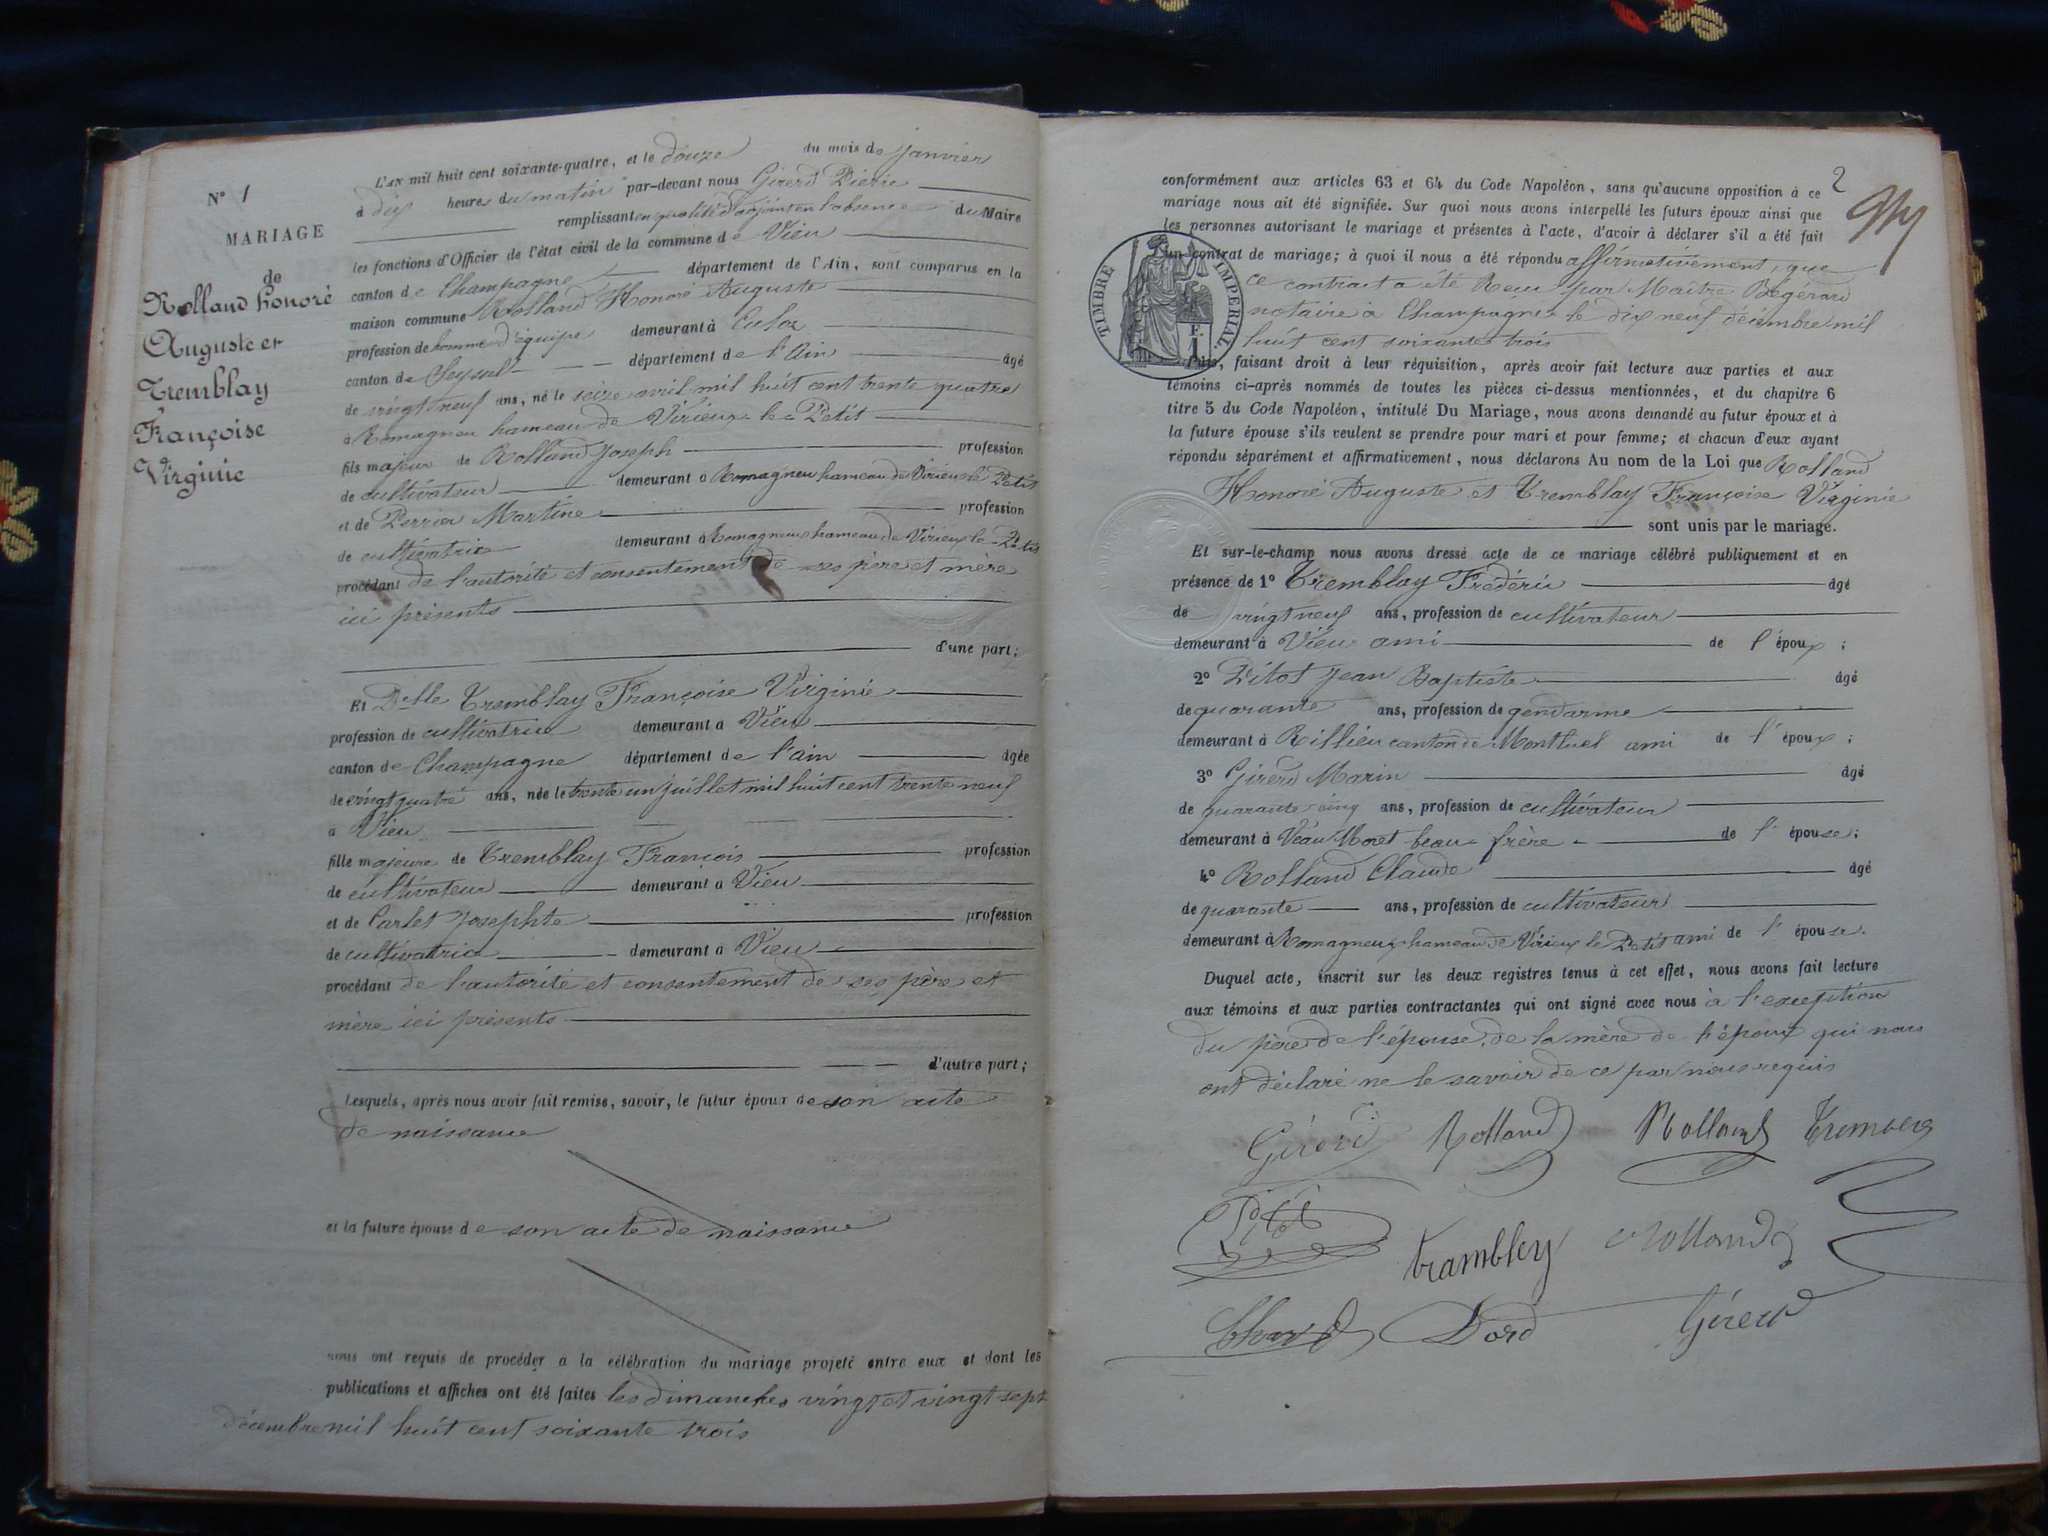 N° 1
MARIAGE
de
Rolland honoré
Auguste et
Tremblay
Françoise
Virginie
L'AN mil huit cent soixante-quatre, et le douze du mois de janvier
à dix heures du matin par-devant nous Girerd Pierre
remplissant en qualité d'adjoint en l'absence du Maire
les fonctions d'Officier de l'état civil de la commune de Vieu
canton de Champagne département de l'Ain, sont comparus en la
maison commune Rolland Honoré Auguste
profession de homme d'équipe demeurant à Culoz
canton de Seyssel département de l'Ain âgé
de vingt neuf ans, né le seize avril mil huit cent trente quatre
à Romagneu hameau de Virieux le Petit
fils majeur de Rolland Joseph profession
de cultivateur demeurant à Romagneu hameau de Virieux le Petit
et de Perrier Martine profession
de cultivatrice demeurant à Romagneux hameau de Virieux le Petit
procédant de l'autorité et consentement de ses père et mère
ici présents
d'une part;
Et Delle Tremblay Françoise Virginie
profession de cultivatrice demeurant à Vieu
canton de Champagne département de l'ain âgée
de vingt quatre ans, née le trente un juillet mil huit cent trente neuf
à Vieu
fille majeure de Tremblay François profession
de cultivateur demeurant à Vieu
et de Carlet Josephte profession
de cultivatrice demeurant à Vieu
procédant de l'autorité et consentement de ses père et
mère ici présents
d'autre part;
Lesquels, après nous avoir fait remise, savoir, le futur époux de son acte
de naissance
et la future épouse de son acte de naissance
nous ont requis de procéder à la célébration du mariage projeté entre eux et dont les
publications et affiches ont été faites les dimanches vingt et vingt sept
décembre mil huit cent soixante trois
2
conformément aux articles 63 et 64 du Code Napoléon, sans qu'aucune opposition à ce
mariage nous ait été signifiée. Sur quoi nous avons interpellé les futurs époux ainsi que
les personnes autorisant le mariage et présentes à l'acte, d'avoir à déclarer s'il a été fait
un contrat de mariage; à quoi il nous a été répondu affirmativement, que
ce contrat a été Reçu par Maître Bégérard
notaire à Champagne le dix neuf décembre mil
huit cent soixante trois
TIMBRE IMPERIAL
Puis, faisant droit à leur réquisition, après avoir fait lecture aux parties et aux
témoins ci-après nommés de toutes les pièces ci-dessus mentionnées, et du chapitre 6
titre 5 du Code Napoléon, intitulé Du Mariage, nous avons demandé au futur époux et à
la future épouse s'ils veulent se prendre pour mari et pour femme; et chacun d'eux ayant
répondu séparément et affirmativement, nous déclarons Au nom de la Loi que Rolland
Honoré Auguste et Tremblay Françoise Virginie
sont unis par le mariage.
Et sur-le-champ nous avons dressé acte de ce mariage célébré publiquement et en
présence de 1° Tremblay Frédéric âgé
de vingt neuf ans, profession de cultivateur
demeurant à Vieu ami de l'époux;
2° Pitot Jean Baptiste âgé
de quarante ans, profession de gendarme
demeurant à Rillieu canton de Montluel ami de l'époux;
3° Girerd Marin âgé
de quarante cinq ans, profession de cultivateur
demeurant à Vieu beau frère de l'épouse;
4° Rolland Claude âgé
de quarante ans, profession de cultivateur
demeurant à Romagneux hameau de Virieux le Petit ami de l'épouse.
Duquel acte, inscrit sur les deux registres tenus à cet effet, nous avons fait lecture
aux témoins et aux parties contractantes qui ont signé avec nous à l'exception
du père de l'épouse, de la mère de l'époux qui nous
ont déclaré ne le savoir de ce par nous requis
Girerd Rolland Rolland
Trambley Rolland
Dord Girerd